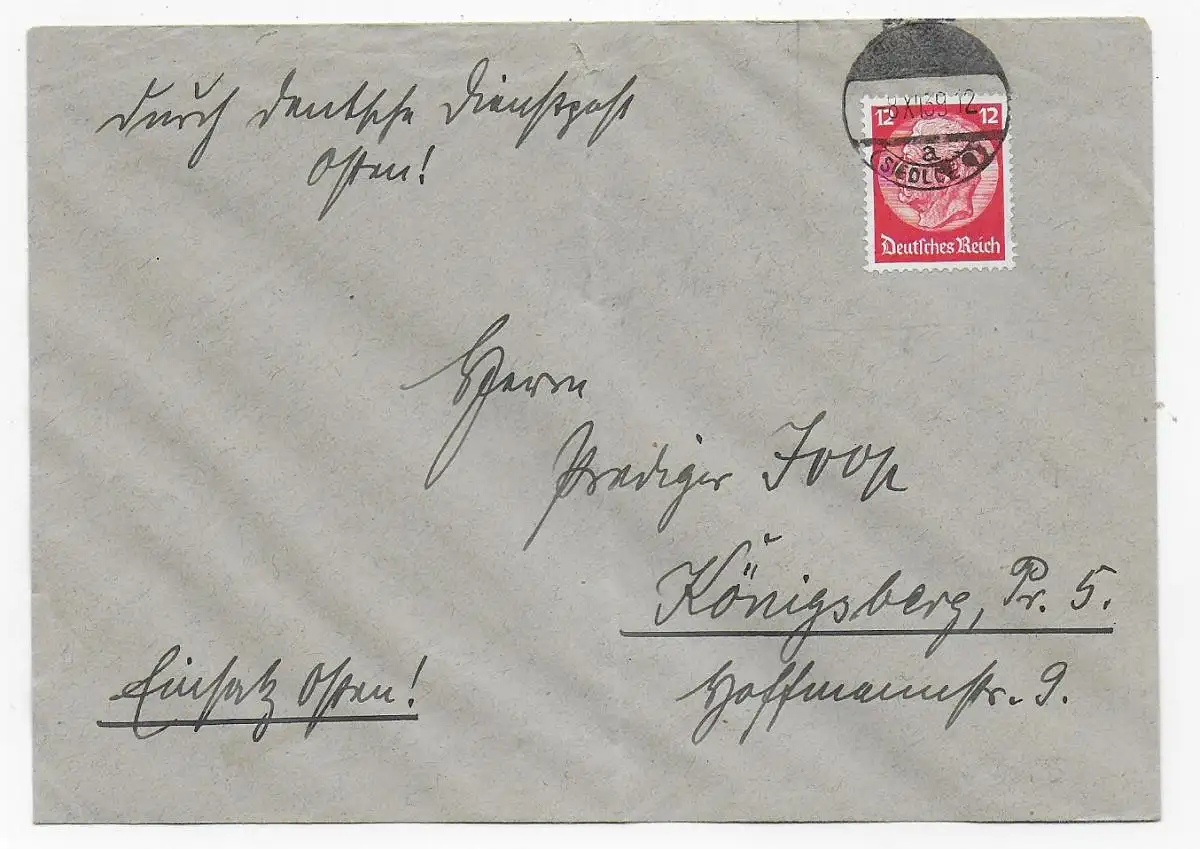 durch deutsche Dienstpost
Osten!
8 XI 39 12
a
SIEDLCE
12 12
Deutsches Reich
Herrn
Prediger Joop
Königsberg, Pr. 5.
Hoffmannstr. 9.
Einsatz Osten!